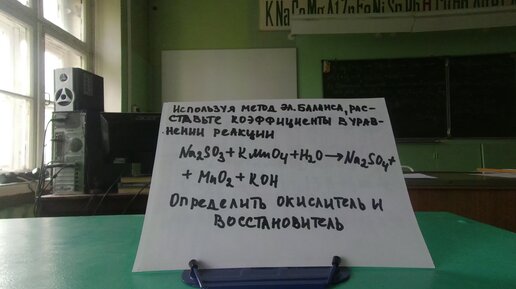 K Na Ca Mg Al Zn Fe Ni Sn Pb H
используя метод эл. баланса, рас-
ставьте коэффициенты в урав-
нении реакции
Na₂SO₃+KMnO₄+H₂O→Na₂SO₄+
+ MnO₂ + KOH
Определить окислитель и
восстановитель